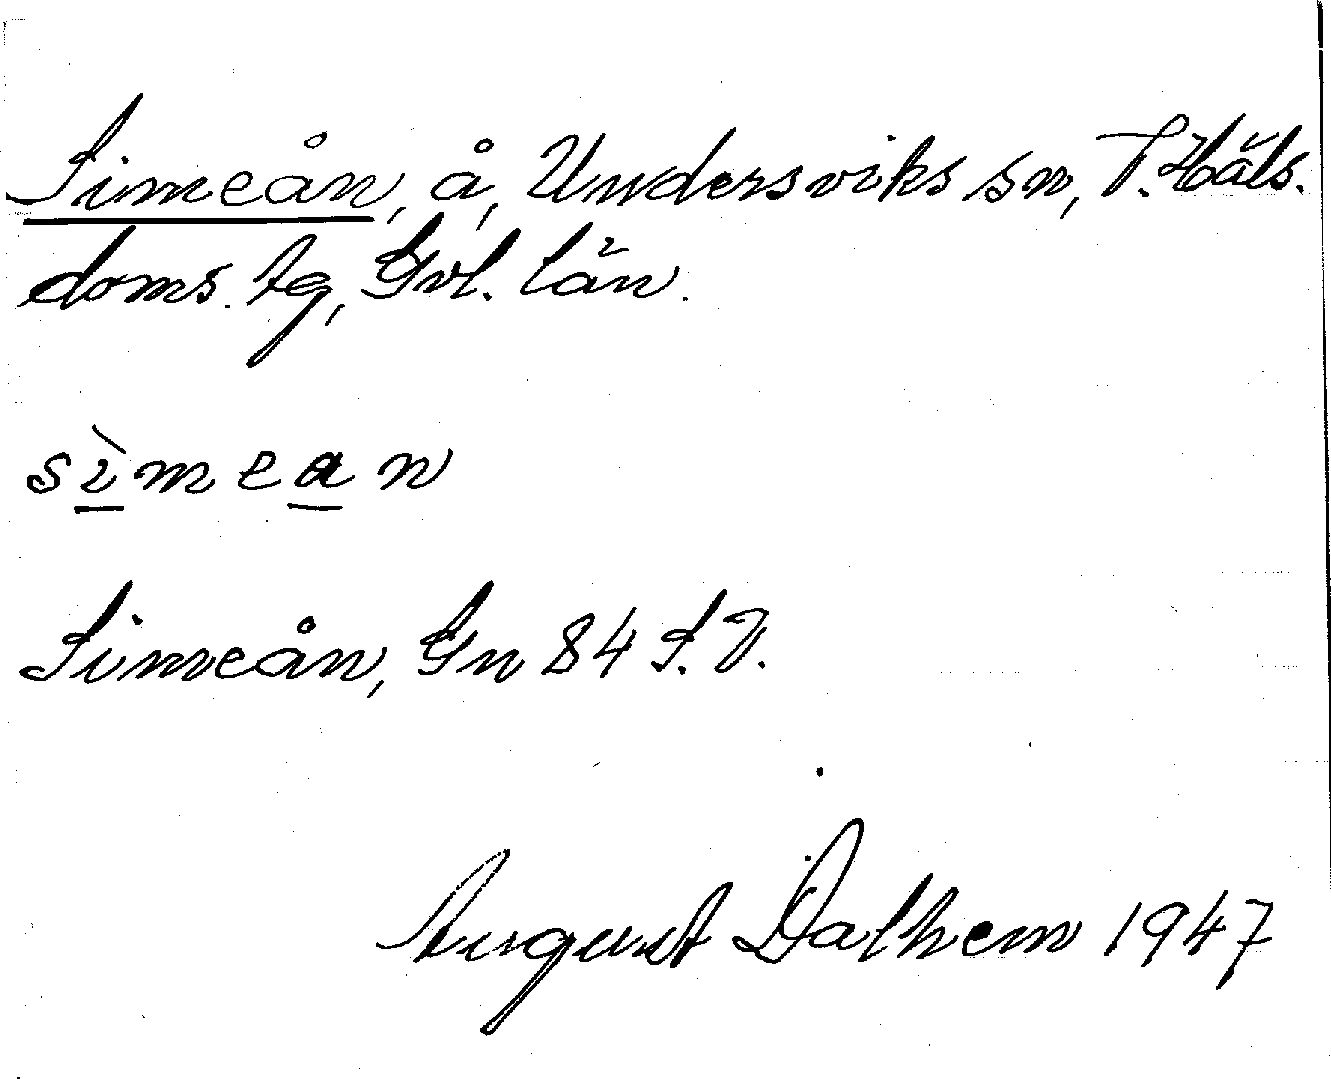 Simeån, å, Undersviks sn, V. Häls.
doms. tg, Gvl. län.
sìmean
Simeån, Gn 84 S.V.
August Dalhem 1947